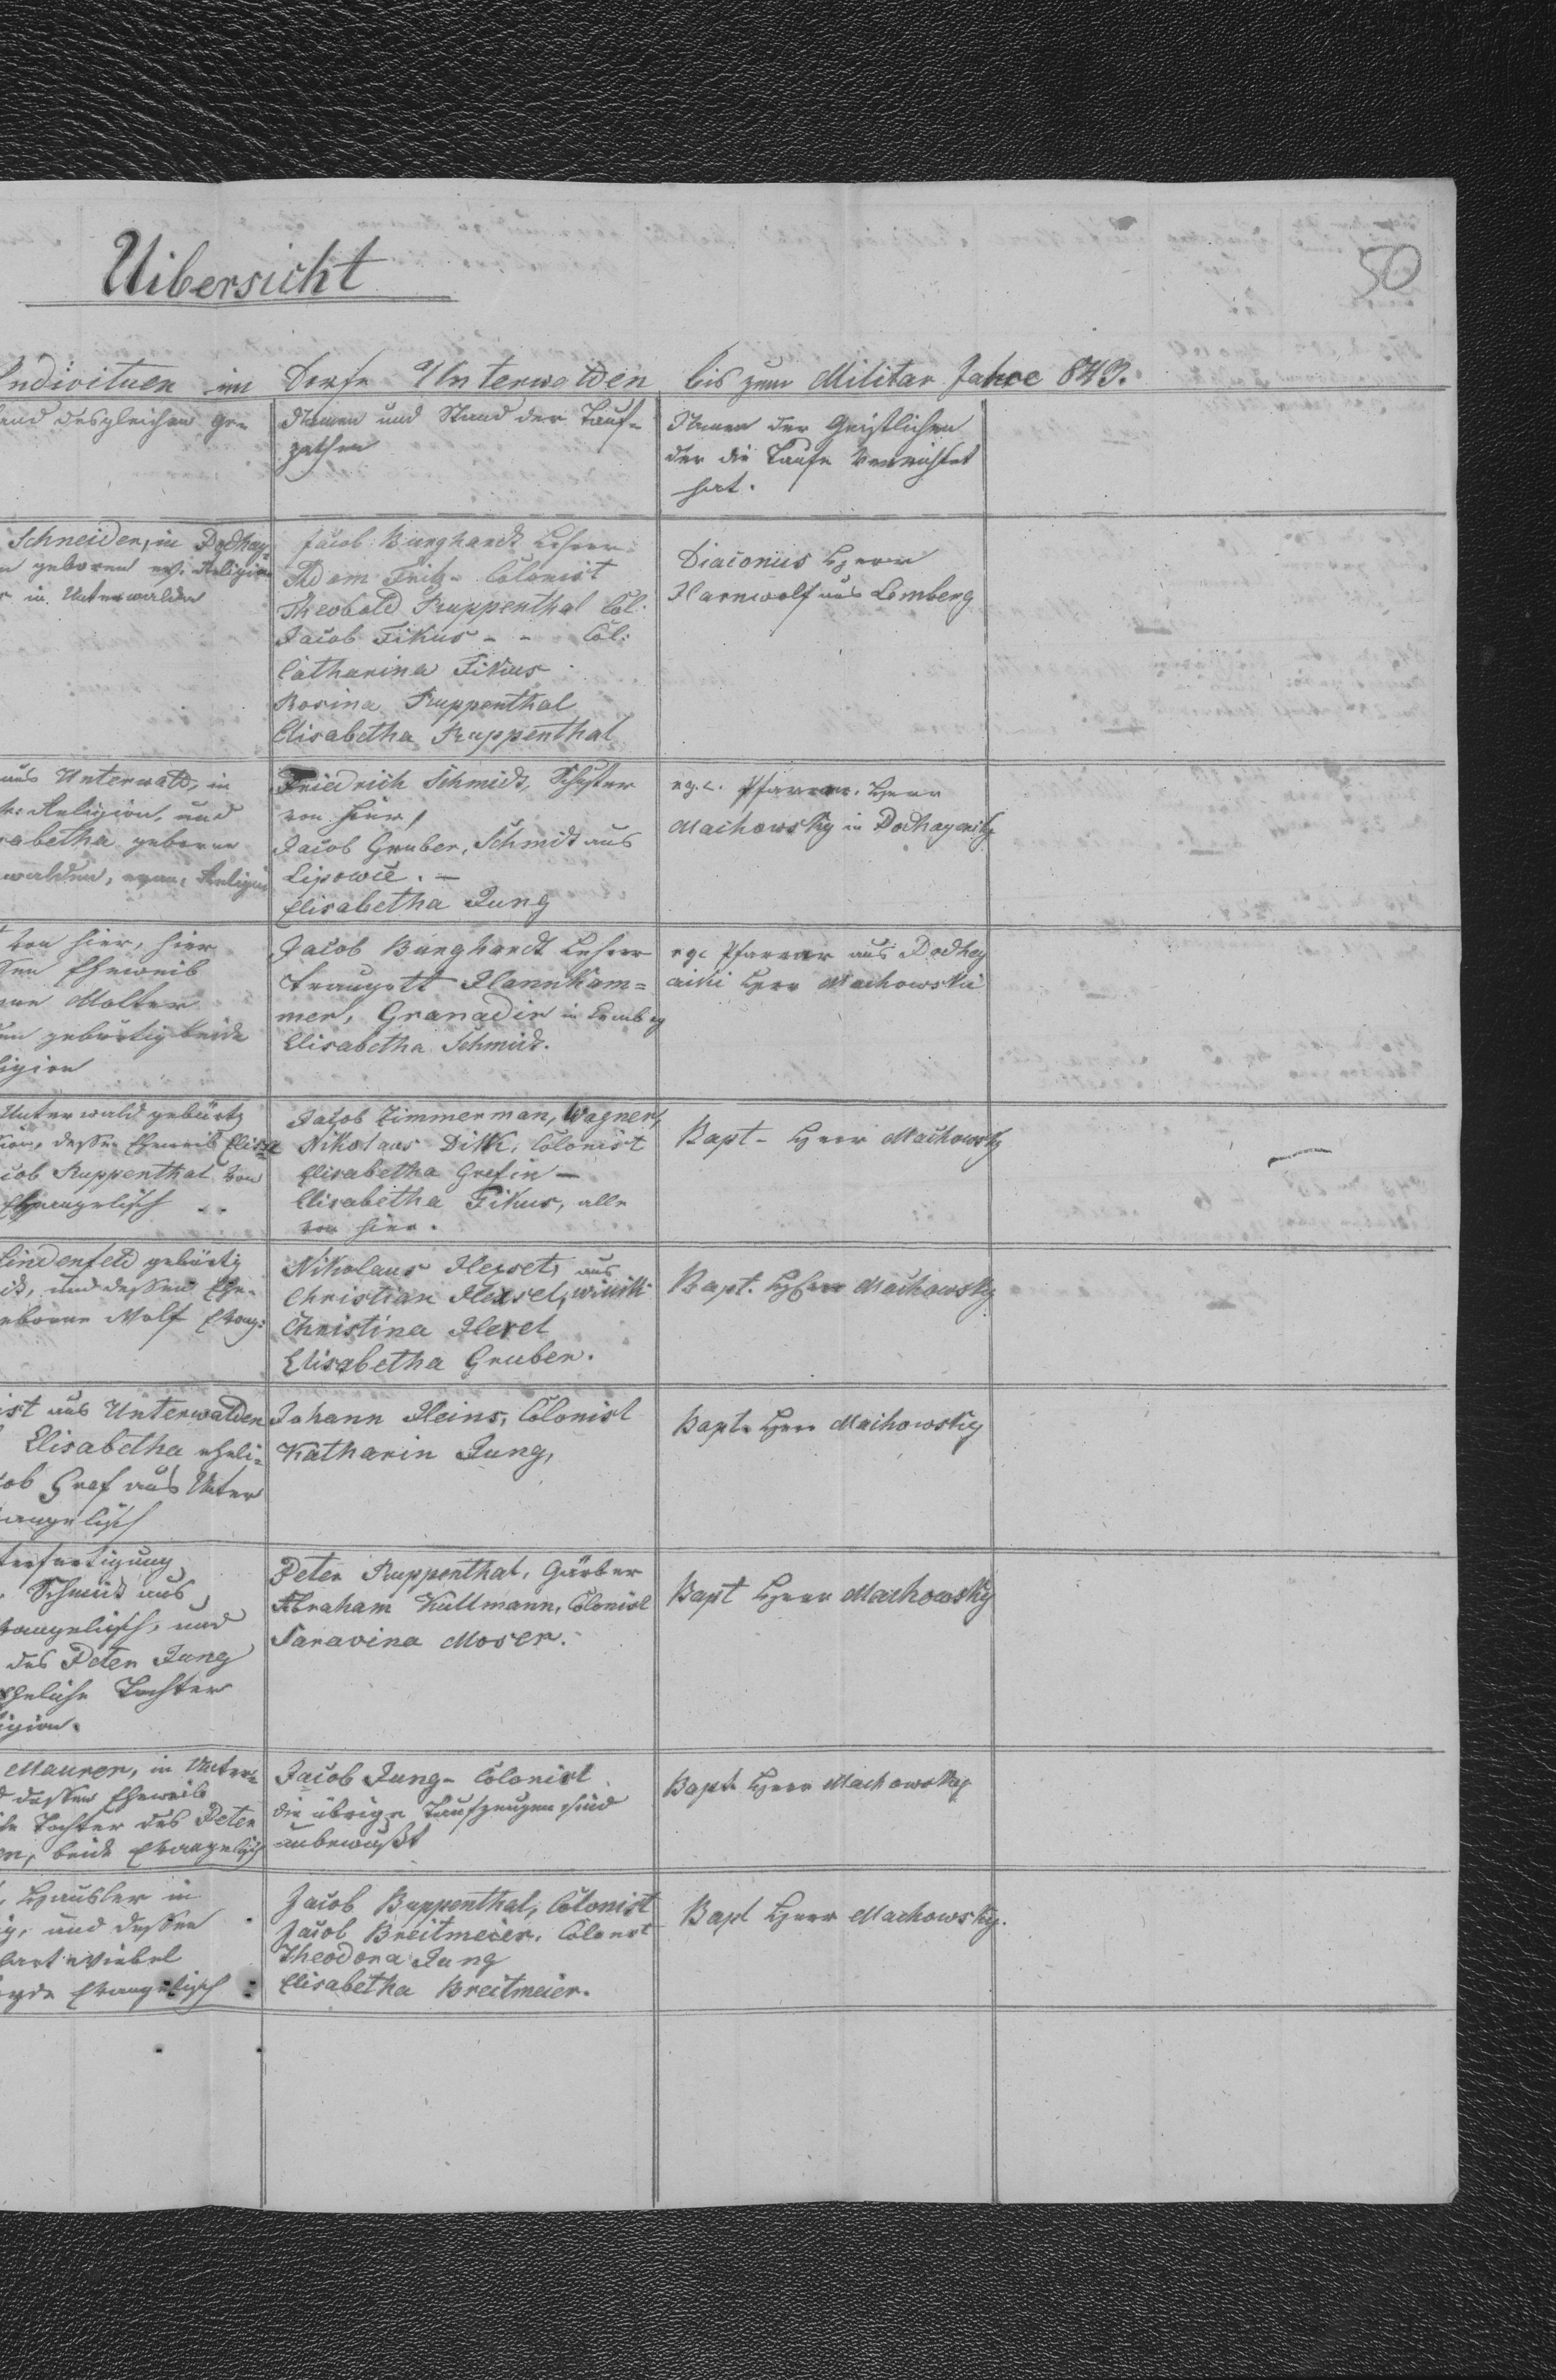 Uibersicht
50
Individuen im Dorfe Unterwalden bis zum Militar Jahre 843.
und desgleichen ge-
Namen und Stand der Tauf-
pathen
Namen der Geistlichen
der die Taufe verrichtet
hat.
Schneider, in Podhay-
geboren ev. Religion
in Unterwalden
Jacob Burghardt Lehrer
Adam Fritz - Colonist
Theobold Ruppenthal Col:
Jacob Fikus - - Col:
Catharina Fikus
Rosina Ruppenthal
Elisabetha Ruppenthal
Diaconus Herr
Harnwolf aus Lemberg
aus Unterwald, in
Religion, und
abetha geborne
walden, evan. Religion
Friedrich Schmidt, Schuster
von hier,
Jacob Gruber, Schmidt aus
Lipowce. -
Elisabetha Jung
Pfarrer. Herr
Machowsky in Podhayczik
von hier, hier
sen Eheweib
Molter
gebürtig beide
ligion
Jacob Burghardt Lehrer
Traugott Hannkam=
mer, Granadir in Lemberg
Elisabetha Schmidt.
Pfarrer aus Podhay
cziki Herr Machowski
Unterwald gebürtig
dessen Eheweib Elise
cob Ruppenthal von
Evangelisch
Jacob Zimmerman, Wagner,
Nikolaus Dikk, Colonist
Elisabetha Grefin -
Elisabetha Fikus, alle
von hier.
Bapt - Herr Machowsky
Lindenfeld gebürtig
und dessen Ehe-
geborne Wolf Evang:
Nikolaus Hexel, aus
Christian Hexsel, winiki
Christina Hexel
Elisabetha Gruber.
Bapt. Herr Machowsky
ist aus Unterwalden
Elisabetha eheli=
cob Graf aus Unter
vangelisch
Johann Heins, Colonist
Katharin Jung,
Bapt. Herr Machowsky
Schmidt aus
Evangelisch, und
des Peter Jung
eheliche Tochter
ligion.
Peter Ruppenthal, Gärber
Abraham Kullmann, Colonist
Saravina Moser.
Bapt Herr Machowsky
Maurer, in Unter=
dessen Eheweib
Tochter des Peter
beide Evangelisch
Jacob Jung - Colonist
die übrige Taufzeugen sind
unbewußt
Bapt Herr Machowsky
Häusler in
und dessen
Wiebel
beyde Evangelisch
Jacob Ruppenthal, Colonist
Jacob Breitmeier, Colonst
Theodora Jung
Elisabetha Breitmeier.
Bapt Herr Machowsky.